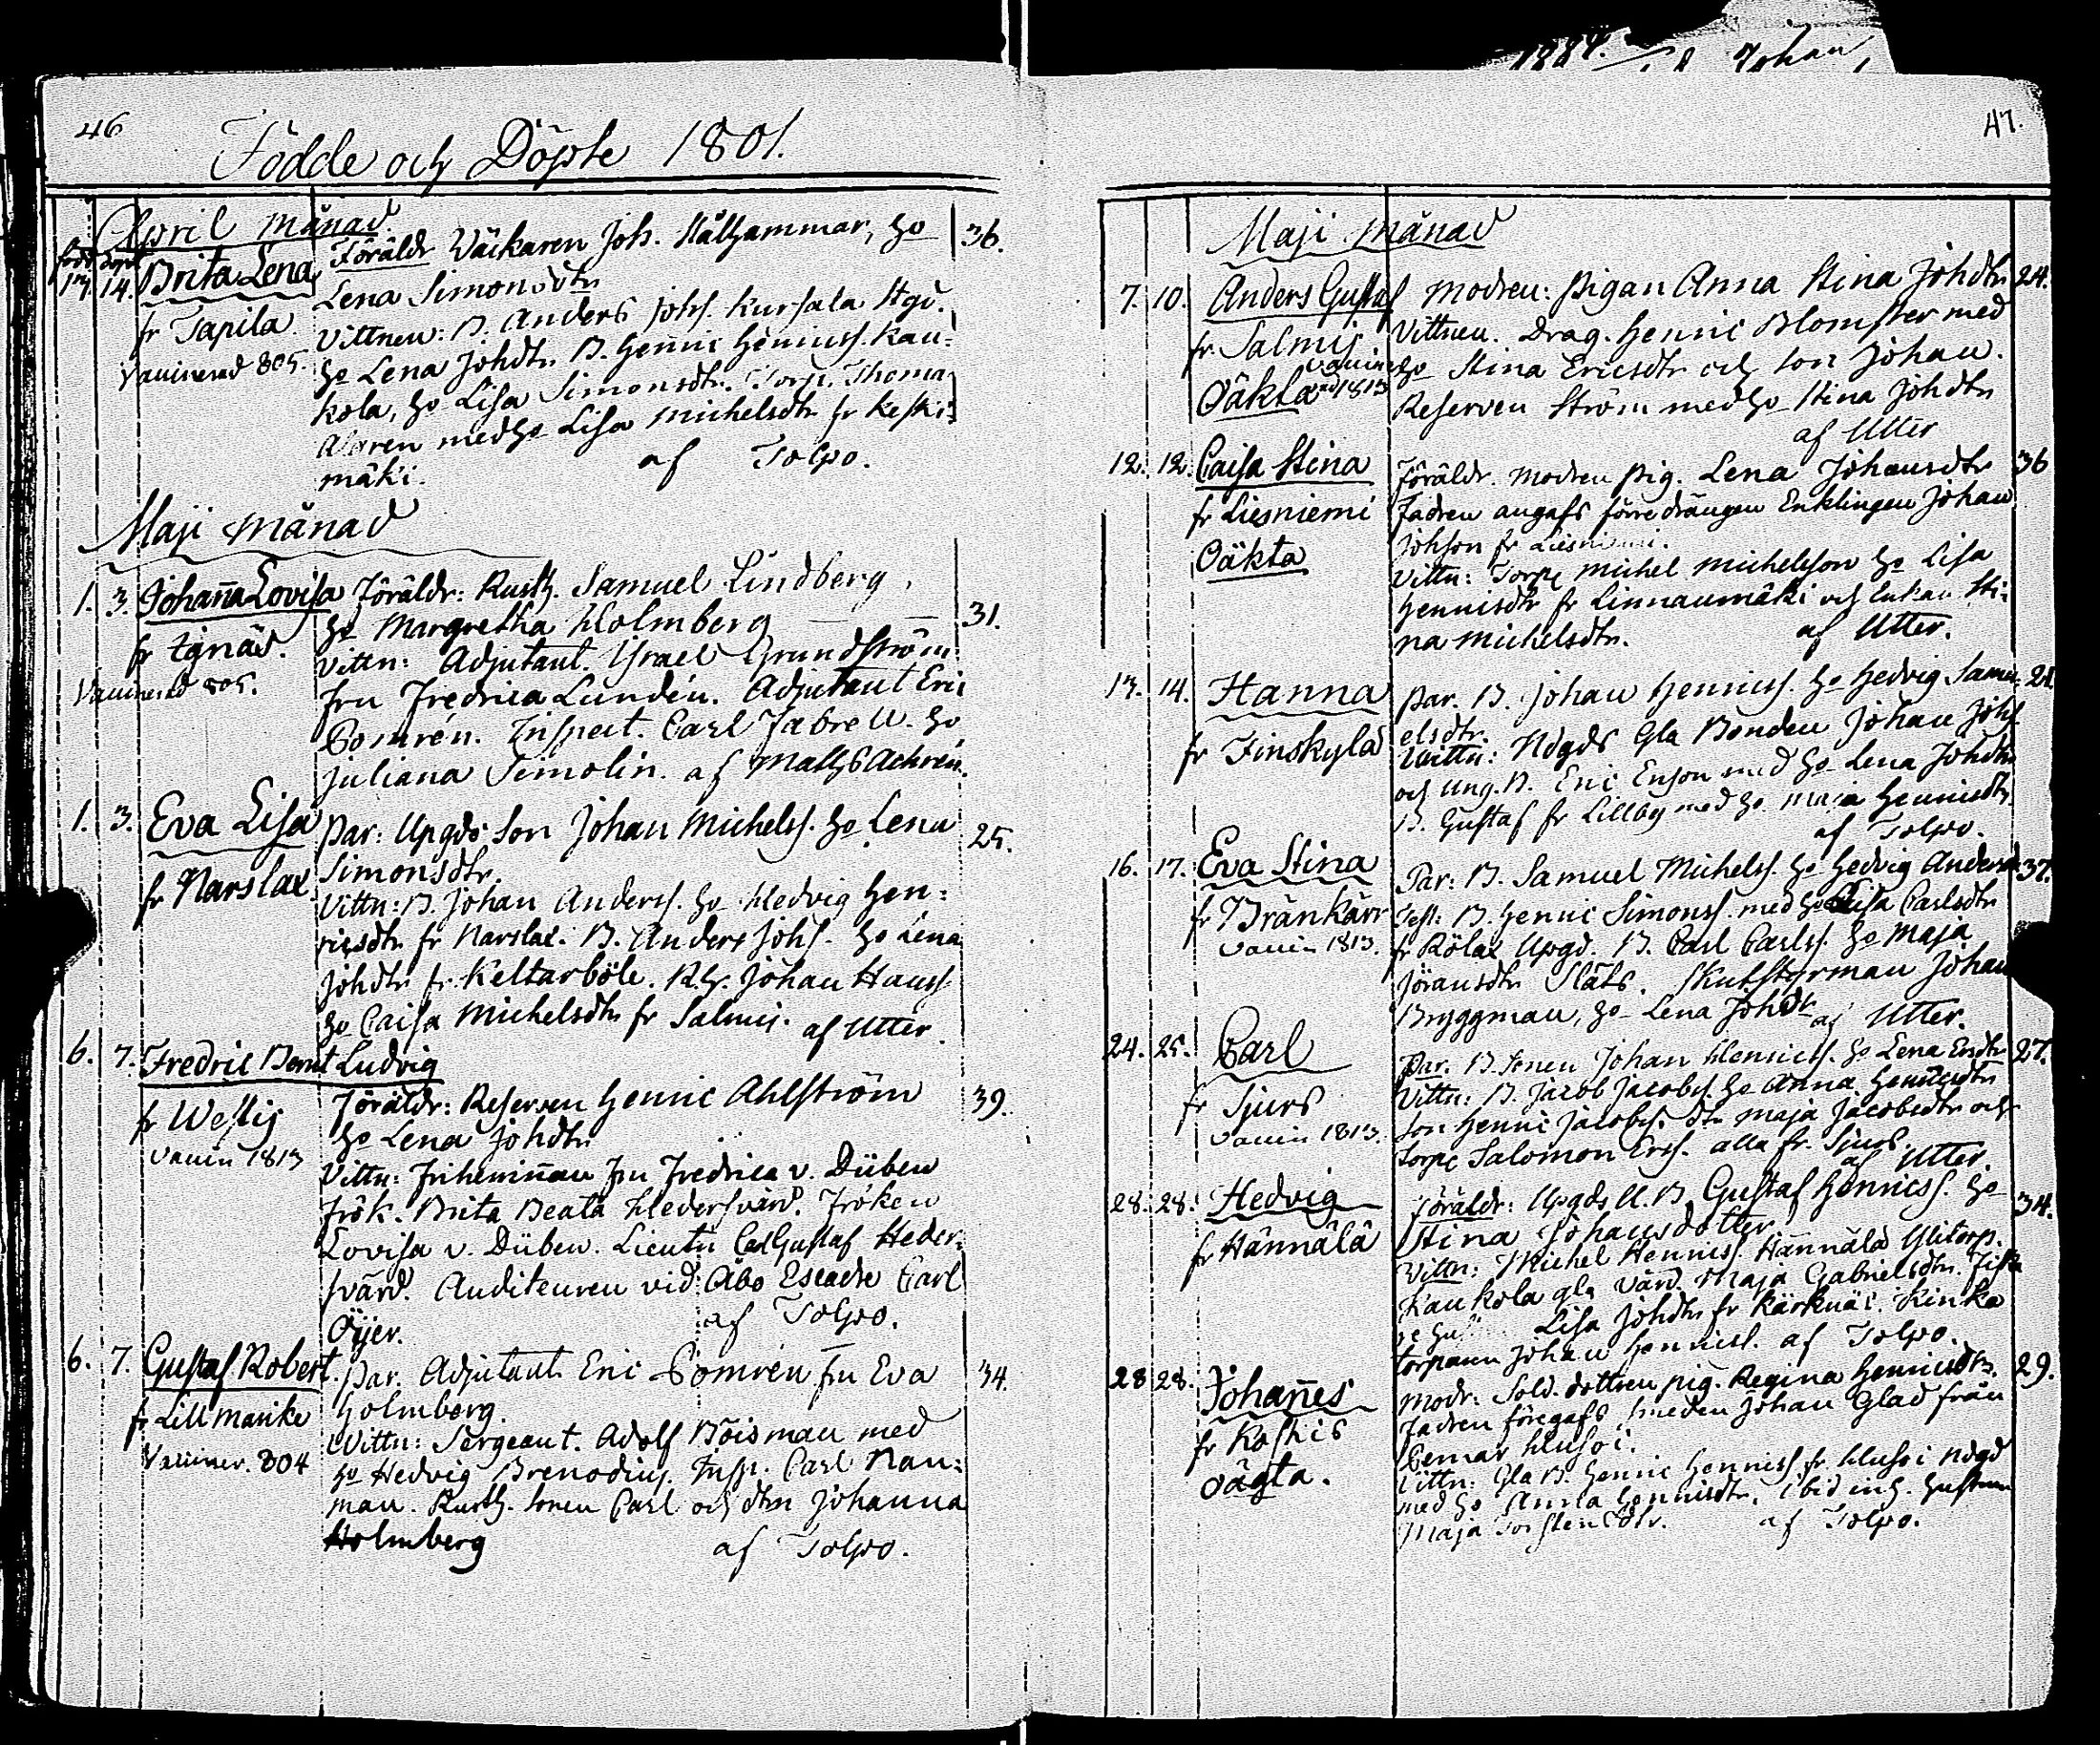 1884. Johan,
46
Födde och Döpte 1801.
April Månad.
född döpt
13. 14. Brita Lena
fr Tapila.
Vaccinerad 805.
Föräldr Väckaren Joh. Stålhammar, Ho 36.
Lena Simonsdtr
Vittnen: B. Anders Johs. Kursala Ägd.
Ho Lena Johdtr. B. Henric Henricss. Kau-
kola, Ho Lisa Simonsdtr. Torp. Thomas
med Ho Lisa Michelsdtr fr Keski-
mäki. af Tolpo.
Maji Månad
1. 3. Johanna Lovisa
fr Egnäs.
Vaccinerad 805.
Föräldr: Rusth. Samuel Lindberg,
Ho Margretha Holmberg 31.
Vittn: Adjutant. Israel Grundström
fru Fredrica Lundén. Adjutant Eric
Pomrén. Inspect. Carl Ho
Juliana Simolin. af Achrén.
1. 3. Eva Lisa
fr Narslax.
Par: Upgds Son Johan Michelss. Ho Lena 25.
Simonsdtr.
Vittn: B. Johan Anderss. Ho Hedvig Hen-
ricsdtr fr Narslax. B. Anders Johs. Ho Lena
Johdtr fr Keltarböle. R.H. Johan Hanss.
Ho Caisa Michelsdtr fr Salmis. af Utter.
6. 7. Fredric Bernt Ludvig
fr Westis
vaccin 1813
Föräldr: Reserven Henric Ahlström 39.
Ho Lena Johdtr
Vittn: Friherrinnan Fru Fredrica v. Düben
Frök. Brita Beata Hedersvärd. Fröken
Lovisa v. Düben. Lieutn Carl Gustaf Heder-
svärd. Auditeuren vid Åbo Escadre Carl
Öijer. af Tolpo.
6. 7. Gustaf Robert
fr Lill Marike
Vacciner. 804
Par. Adjutant Eric Pomrén fru Eva 34.
Holmberg.
Vittn: Sergeant. Adolf Boisman med
Ho Hedvig Brenodius. Insp. Carl Nau-
man. Rusth. Sonen Carl och dtrn Johanna
Holmberg af Tolpo.
47.
Maji Månad
7. 10. Anders Gustaf
fr Salmis
vaccinerad 1813
Oäkta
Modren: Pigan Anna Stina Johdtr 24.
Vittnen. Drag. Henric Blomster med
Ho Stina Ericsdtr och Son Johan.
Reserven Ström med Ho Stina Johdtr
af Utter
12. 12. Caisa Stina
fr Liesniemi
Oäkta
Föräldr. Modren Pig. Lena Johansdtr 36
Fadren angafs förre drängen Enklingen Johan
Johson fr Liesniemi.
Vittn: Torp Michel Michelsson Ho Lisa
Henricsdtr fr Linnaumäki och Enkan Sti-
na Michelsdtr. af Utter.
13. 14. Hanna
fr Finskyla
Par. B. Johan Henricss. Ho Hedvig Samu-
elsdtr.
Vittn: Ndgds Gla Bonden Johan Johs
och Ung. B. Eric Erson med Ho Lena Johdtr
B. Gustaf fr Lillby med Ho Maja Henricsdtr
af Tolpo.
16. 17. Eva Stina
fr Bränkärr
vaccin 1813.
Par: B. Samuel Michelss. Ho Hedvig Andersd 37.
Test: B. Henric Simonss. med Ho Lisa Carlsdtr
fr Rölax Upgd. B. Carl Carlss. Ho Maja
Jöransdtr Släts. Skutstyrman Johan
Bryggman, Ho Lena Johdtr af Utter.
24. 25. Carl
fr Sjurs
vaccin 1813.
Par. B. Sonen Johan Henricss. Ho Lena Ersdtr 27.
Vittn: B. Jacob Jacobss. Ho Anna Henricsdtr
Son Henric Jacobss. dtr Maja Jacobsdtr och
Torp Salomon Erss. alla fr. Sjurs.
af Utter.
28. 28. Hedvig
fr Hännälä
Föräldr: Upgds U. B. Gustaf Henricss. Ho 34.
Stina Johansdotter
Vittn: Michel Henricss. Hännälä
Kaukola gla Värd. Maja Gabrielsdtr.
Lisa Johdtr fr Kärknäs. Kinka
torparen Johan Henricss. af Tolpo.
28 28. Johannes
fr Koskis
oägta.
Modr: Sold. dottren pig. Regina Henricsdtr. 29.
Fadren föregafs smeden Johan Glad från
Pemar Huso i.
Vittn: Gla B. Henric Henricss. fr Huso i Ndgd
med Ho Anna Henricsdtr. Ibid inh. hustrun
Maja Torstensdtr. af Tolpo.